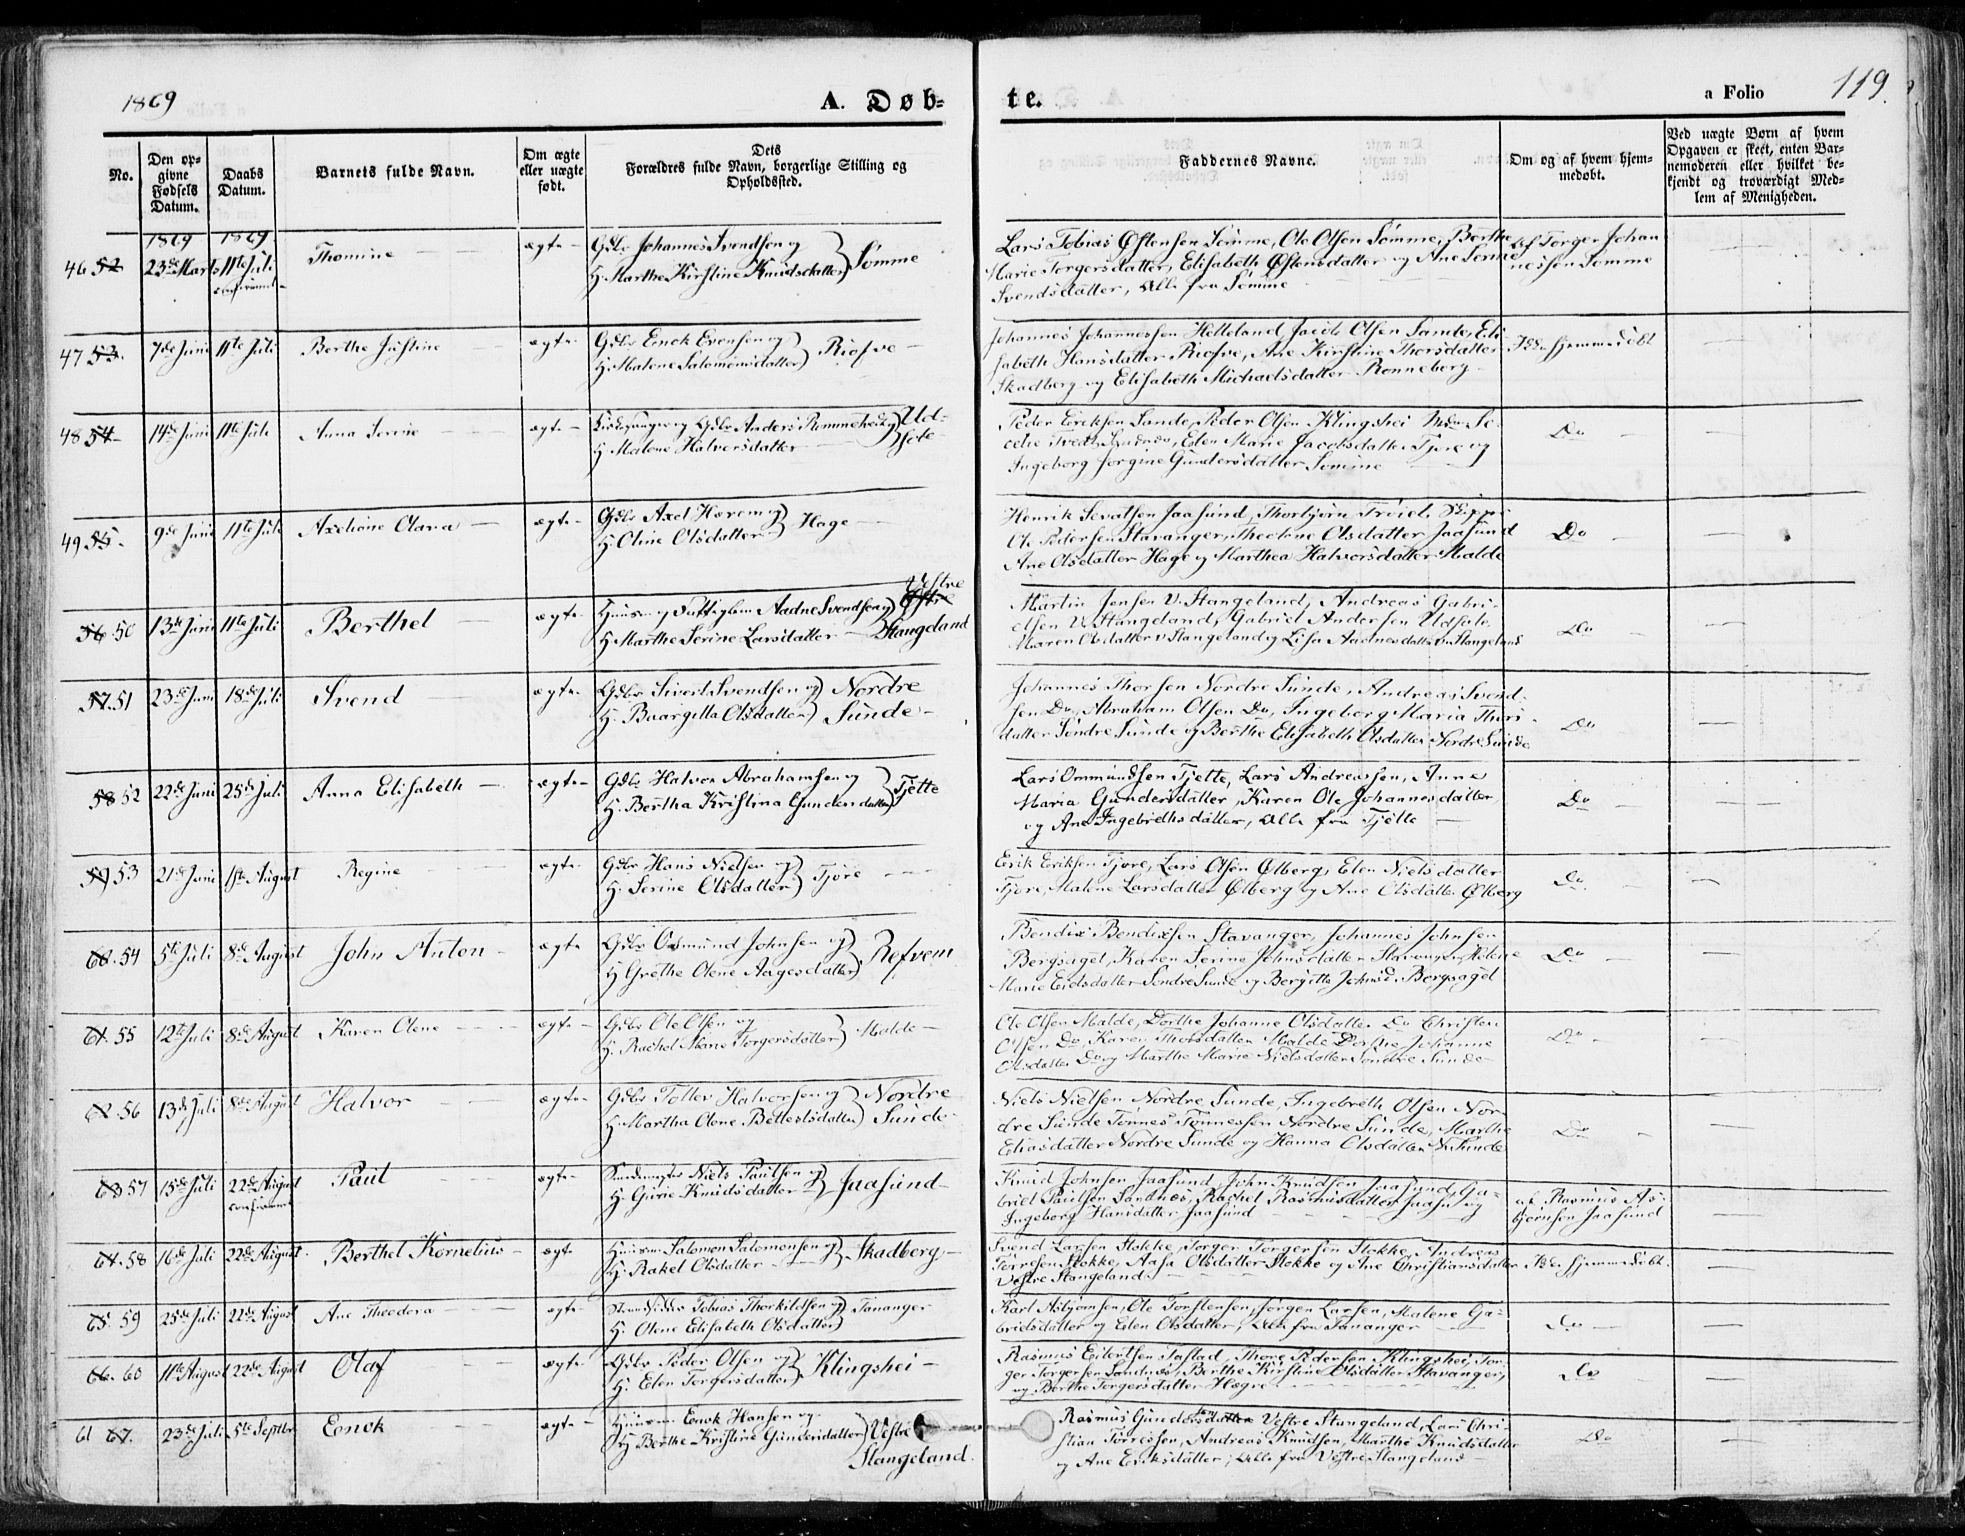 1869
A. Døb=
te.
a Folio
119.
No.
Den op=
givne
Fødsels
Datum.
Daabs
Datum.
Barnets fulde Navn.
Om ægte
eller uægte
født.
Dets
Forældres fulde Navn, borgerlige Stilling og
Opholdssted.
Faddernes Navne.
Om og af hvem hjem-
medøbt.
Ved uægte Børn af hvem
Opgaven er skeet, enten Bar-
nemoderen eller hvilket be-
kjendt og troværdigt Med-
lem af Menigheden.
1869 1869
46 52 23de Marts 11te Juli Thomine ægte Gdbr Johannes Svendsen og
H. Marthe Kirstine Knudsdatter Sømme
Lars Tobias Østensen Sømme, Ole Olsen Sømme, Berthe
Marie Torgersdatter, Elisabeth Østensdatter og Ane Serine
Svendsdatter, Alle fra Sømme
af Torger Johan
nessen Sømme
47 53. 7de Juni 11te Juli Berthe Justine ægte Gdbr Enok Evensen og
H. Malene Salomonsdatter Risfve
Johannes Johannessen Helleland, Jacob Olsen Sande, Eli
sabeth Hansdatter Risfve, Ane Kirstine Thorsdatter
Skadberg og Elisabeth Michaelsdatter Rønneberg
Ikke hjemmedøbt
48 54 14de Juni 11te Juli Anna Serine ægte Kirkesanger og Gdbr Anders Rummehed og
H. Malene Halvorsdatter Ud-
sole
Peder Eriksen Sande, Peder Olsen Klingshei
Elen Marie Jacobsdatter Tjore og
Ingeborg Jørgine Gundersdatter Sømme
Do
49 55. 9de Juni 11te Juli Axeliane Clara ægte Gdbr Axel Hærem og
H. Oline Olsdatter Hage
Henrik Sevatsen Jaasund, Thorbjørn
Ole Pedersen Stavanger, Theoline Olsdatter Jaasund
Ane Olsdatter Hage og Marthea Halvorsdatter Malde
Do
56 50 13de Juni 11te Juli Berthel ægte Huusm og Aadne Svendsen og
H. Marthe Serine Larsdatter Østre Vestre
Stangeland
Martin Jensen V. Stangeland, Andreas Gabri-
elsen V. Stangeland, Gabriel Andersen Udsole
Maren Olsdatter v Stangeland og Lisa Aadnesdatter v Stangeland
Do
57. 51 23de Juni 18de Juli Svend ægte Gdbr Sivert Svendsen og
H. Baargilla Olsdatter Nordre
Sunde
Johannes Thorsen Nordre Sunde, Andreas Svend-
sen Do, Abraham Olsen Do, Ingeborg Maria Thors-
datter Søndre Sunde og Berthe Elisabeth Olsdatter Nordre Sunde
Do
58 52 22de Juni 25de Juli Anna Elisabeth ægte Gdbr Halvor Abrahamsen og
H. Bertha Kristina Gundersdatter Tjette
Lars Ommundsen Tjette, Lars Andreassen, Anne
Maria Gundersdatter, Karen Ole Johannesdatter
og Ane Ingebrethsdatter, Alle fra Tjette
Do
59 53 21de Juni 1ste August Regine ægte Gdbr Hans Nielsen og
H. Serine Olsdatter Tjore
Erik Eriksen Tjore, Lars Olsen Ølberg, Elen Nielsdatter
Tjore, Malene Larsdatter Ølberg og Ane Olsdatter Ølberg
Do
60. 54 5te Juli 8de August John Anton ægte Gdbr Osmund Johnsen og
H Grethe Olene Aagesdatter Refvem
Bendix Bendixsen Stavanger, Johannes Johnsen
Bergsagel, Karen Serine Johnsdatter Stavanger, Helene
Marie Eidsdatter Søndre Sunde og Bergitte Johnsd. Bergsagel
Do
61. 55 12te Juli 8de August Karen Olene ægte Gdbr Ole Olsen og
H. Rachel Marie Torgersdatter Malde
Ole Olsen Malde, Dorthe Johanne Olsdatter Do Christen
Olsen Do, Karen Thorsdatter Malde Dorthe Johanne
Olsdatter Do og Marthe Marie Nielsdatter Søndre Sunde
Do
62 56 13de Juli 8de August Halvor ægte Gdbr Tollev Halvorsen og
H. Martha Olene Bettestsdatter Nordre
Sunde
Niels Nielsen Nordre Sunde, Ingebreth Olsen Nor-
dre Sunde Tønnes Tønnessen Nordre Sunde, Marthe
Eliasdatter Nordre Sunde og Hanna Olsdatter N. Sunde
Do
63 57 15de Juli 22de August Paul ægte Niels Paulsen og
H. Gurie Knudsdatter Jaasund
Knud Johnsen Jaasund, John Knudsen Jaasund, Ga-
briel Paulsen Sandnes, Rachel Rasmusdatter Jaasu og
Ingeborg Hansdatter Jaasund
af Rasmus As-
bjørnsen Jaasund
64. 58 16de Juli 22de August Berthel Kornelius ægte Huusm Salomon Salomonsen og
H. Rakel Olsdatter Skadberg
Svend Larsen Stokke, Torger Torgersen Stokke, Andreas
Torresen Stokke, Aasa Olsdatter Stokke og Ane Christiansdatter
Vestre Stangeland
Ikke hjemmedøbt.
65. 59 25de Juli 22de August Ane Theodora ægte Strandsidder Tobias Thorkildsen og
H. Olene Elisabeth Olsdatter Tananger
Karl Asbjørnsen, Ole Torstensen, Jørgen Larsen, Malene Ga-
brielsdatter og Elen Olsdatter, Alle fra Tananger
Do
66. 60 11te August 22de August Olaf ægte Gdbr Peder Olsen og
H. Elen Torgersdatter Klingshei
Rasmus Eilertsen Tastad, Thore Pedersen Klingshei, Tor-
ger Torgersen Sandnes, Berthe Kirstine Olsdatter Stavanger,
og Berthe Torgersdatter Hægre
Do
61 67. 23de Juli 5te Septbr Eenok ægte Huusm. Enok Hansen og
H Berthe Kristine Gundersdatter Vestre
Stangeland.
Rasmus Gundersdatter sen Vestre Stangeland, Lars Chri-
stian Torressen, Andreas Knudsen, Marthe Knudsdatter
og Ane Eriksdatter, Alle fra Vestre Stangeland
Do